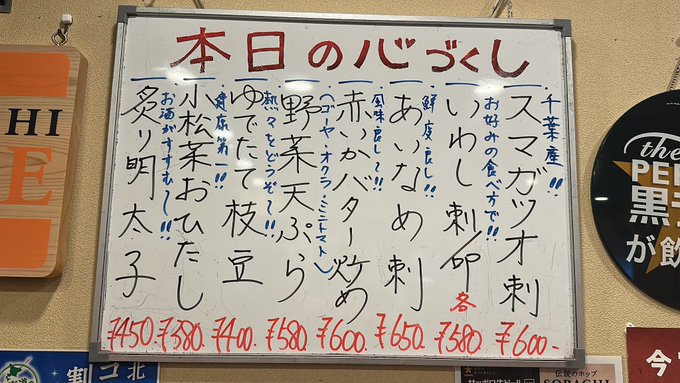 本日の心づくし
千葉産!!
スマガツオ刺
¥600-
お好みの食べ方で!!
いわし刺/卯
各
¥580
鮮度良し!!
あいなめ刺
¥650.
風味良し〜!!
赤いかバター炒め
¥600.
(ゴーヤ・オクラ・ミニトマト)
野菜天ぷら
¥580.
熱々をどうぞ〜!!
ゆでたて枝豆
¥400.
健康第一!!
小松菜おひたし
¥380.
お酒がすすむ〜!!
炙り明太子
¥450.
HI
E
the
PE
黒
が飲
今
伝説のホップ
SORACHI